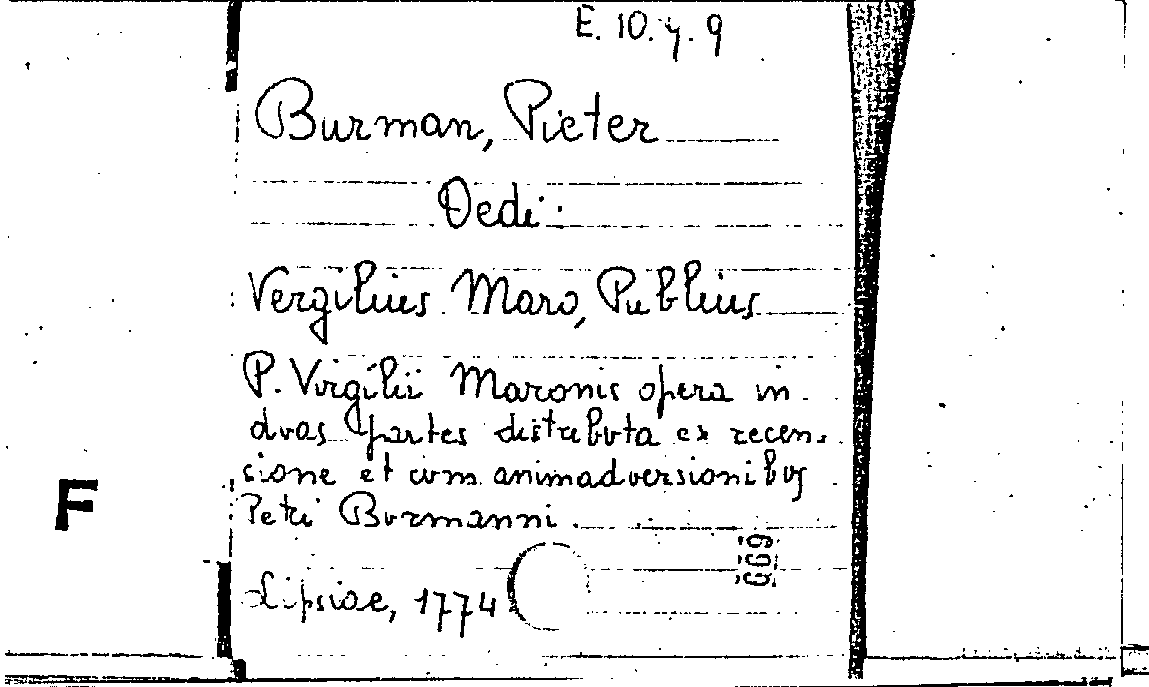 E. 10. y. 9
Burman, Pieter
Dedi:
Vergilius Maro, Publius
P. Virgilii Maronis opera in
duas partes distributa ex recen-
sione et cum animadversionibus
Petri Burmanni.
F
669
Lipsiae, 1774